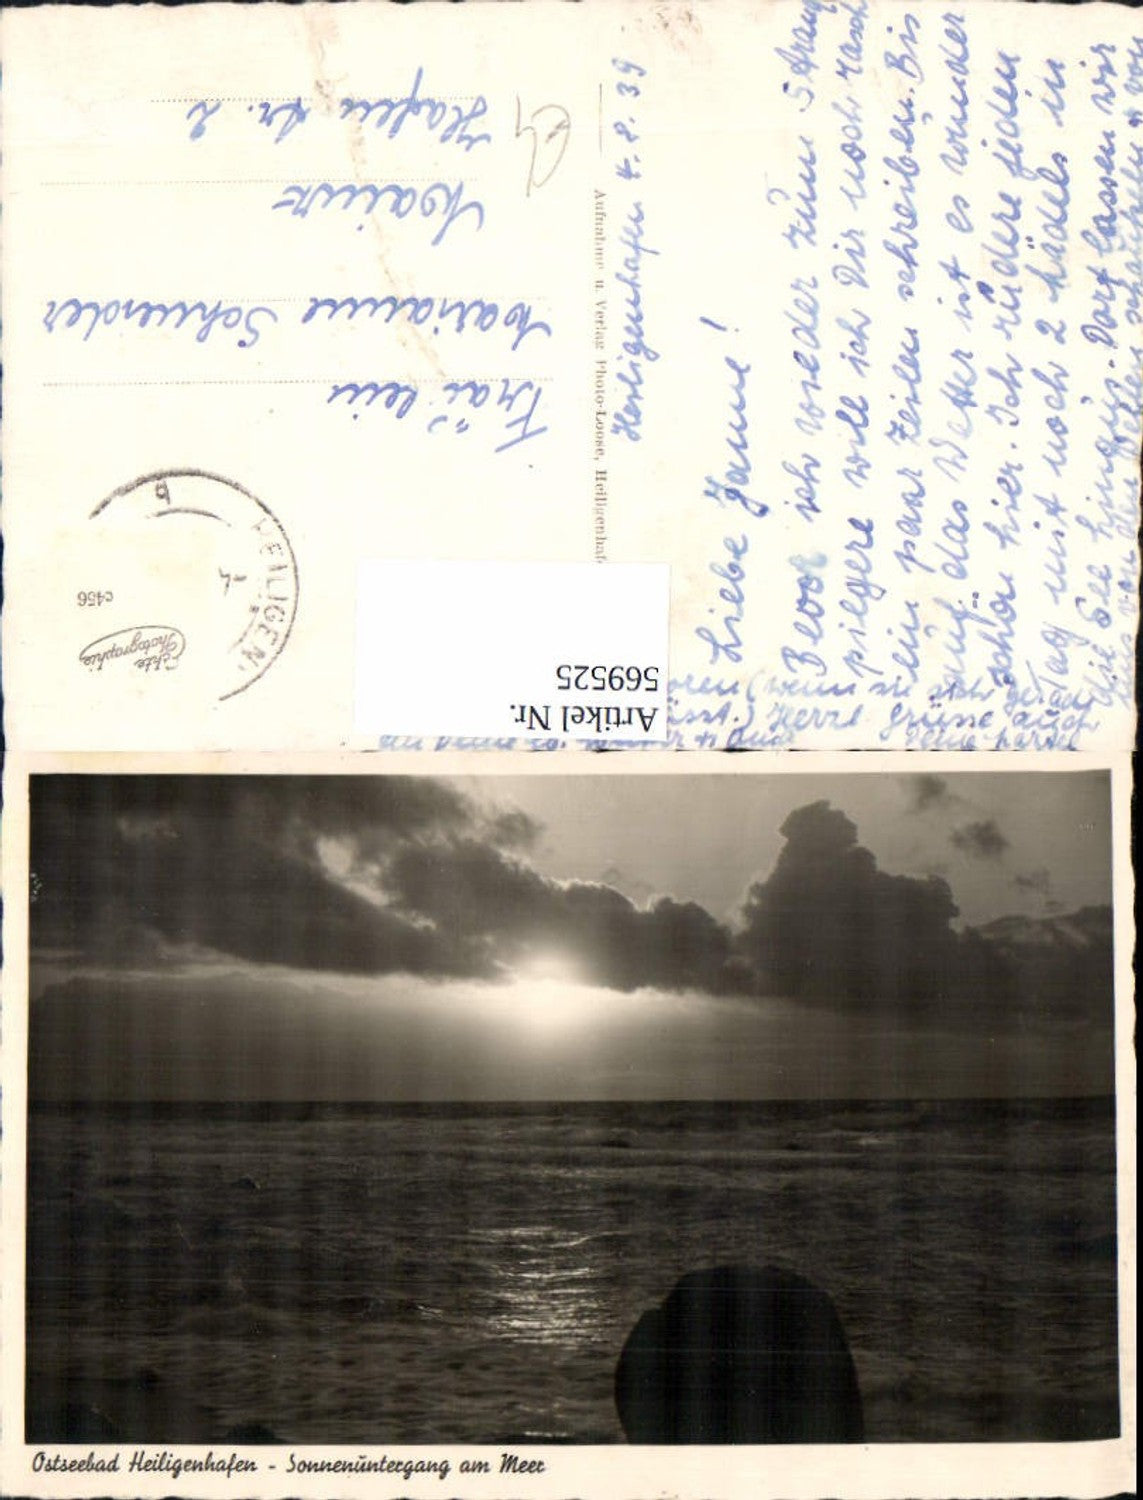 Heiligenhafen 4.8.39
Liebe Janne!
Bevor ich wieder zum Strand
pilgere will ich Dir noch rasch
ein paar Zeilen schreiben. Bis
auf das Wetter ist es wunder
schön hier. Ich rudere jeden
Tag mit noch 2 Mädels in
die See hinaus. Dort lassen wir
uns von den Wellen schaukeln u. von
(wenn sie sich gerade
Herzl. Grüsse auch
Aufnahme u. Verlag Photo-Loose, Heiligenhafen
Fräulein
Marianne Schneider
Mainz
Hafenstr. 2
HEILIGEN
b
Echte
Photographie
c456
Artikel Nr.
569525
Ostseebad Heiligenhafen - Sonnenüntergang am Meer